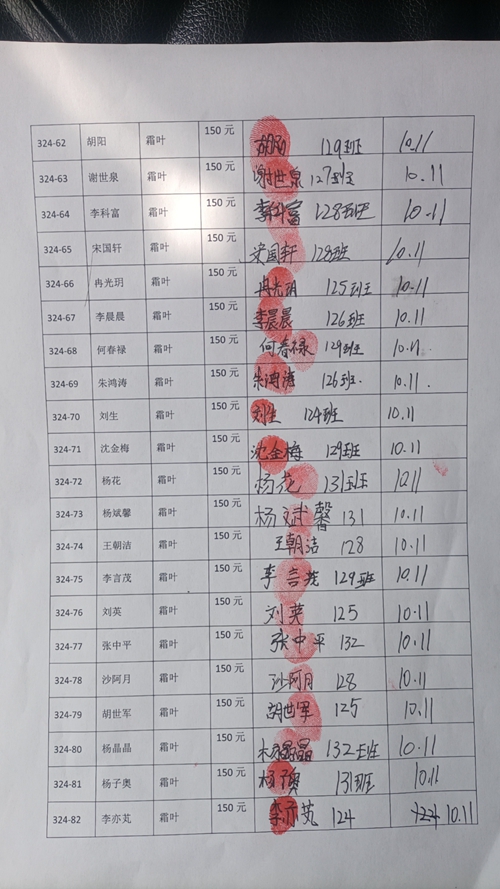 324-62 胡阳 霜叶 150 元 胡阳 129班 10.11
324-63 谢世泉 霜叶 150 元 谢世泉 127班 10.11
324-64 李科富 霜叶 150 元 李科富 128班 10.11
324-65 宋国轩 霜叶 150 元 宋国轩 128班 10.11
324-66 冉光玥 霜叶 150 元 冉光玥 125班 10.11
324-67 李晨晨 霜叶 150 元 李晨晨 126班 10.11
324-68 何春禄 霜叶 150 元 何春禄 129班 10.11
324-69 朱鸿涛 霜叶 150 元 朱鸿涛 126班. 10.11.
324-70 刘生 霜叶 150 元 刘生 124班 10.11
324-71 沈金梅 霜叶 150 元 沈金梅 129班 10.11
324-72 杨花 霜叶 150 元 杨花 131班 10.11
324-73 杨斌馨 霜叶 150 元 杨斌馨 131 10.11
324-74 王朝洁 霜叶 150 元 王朝洁 128 10.11
324-75 李言茂 霜叶 150 元 李言茂 129班 10.11
324-76 刘英 霜叶 150 元 刘英 125 10.11
324-77 张中平 霜叶 150 元 张中平 132 10.11
324-78 沙阿月 霜叶 150 元 沙阿月 128 10.11
324-79 胡世军 霜叶 150 元 胡世军 125 10.11
324-80 杨晶晶 霜叶 150 元 杨晶晶 132班 10.11
324-81 杨子奥 霜叶 150 元 杨子奥 131班 10.11
324-82 李亦芄 霜叶 150 元 李亦芄 124 10.11